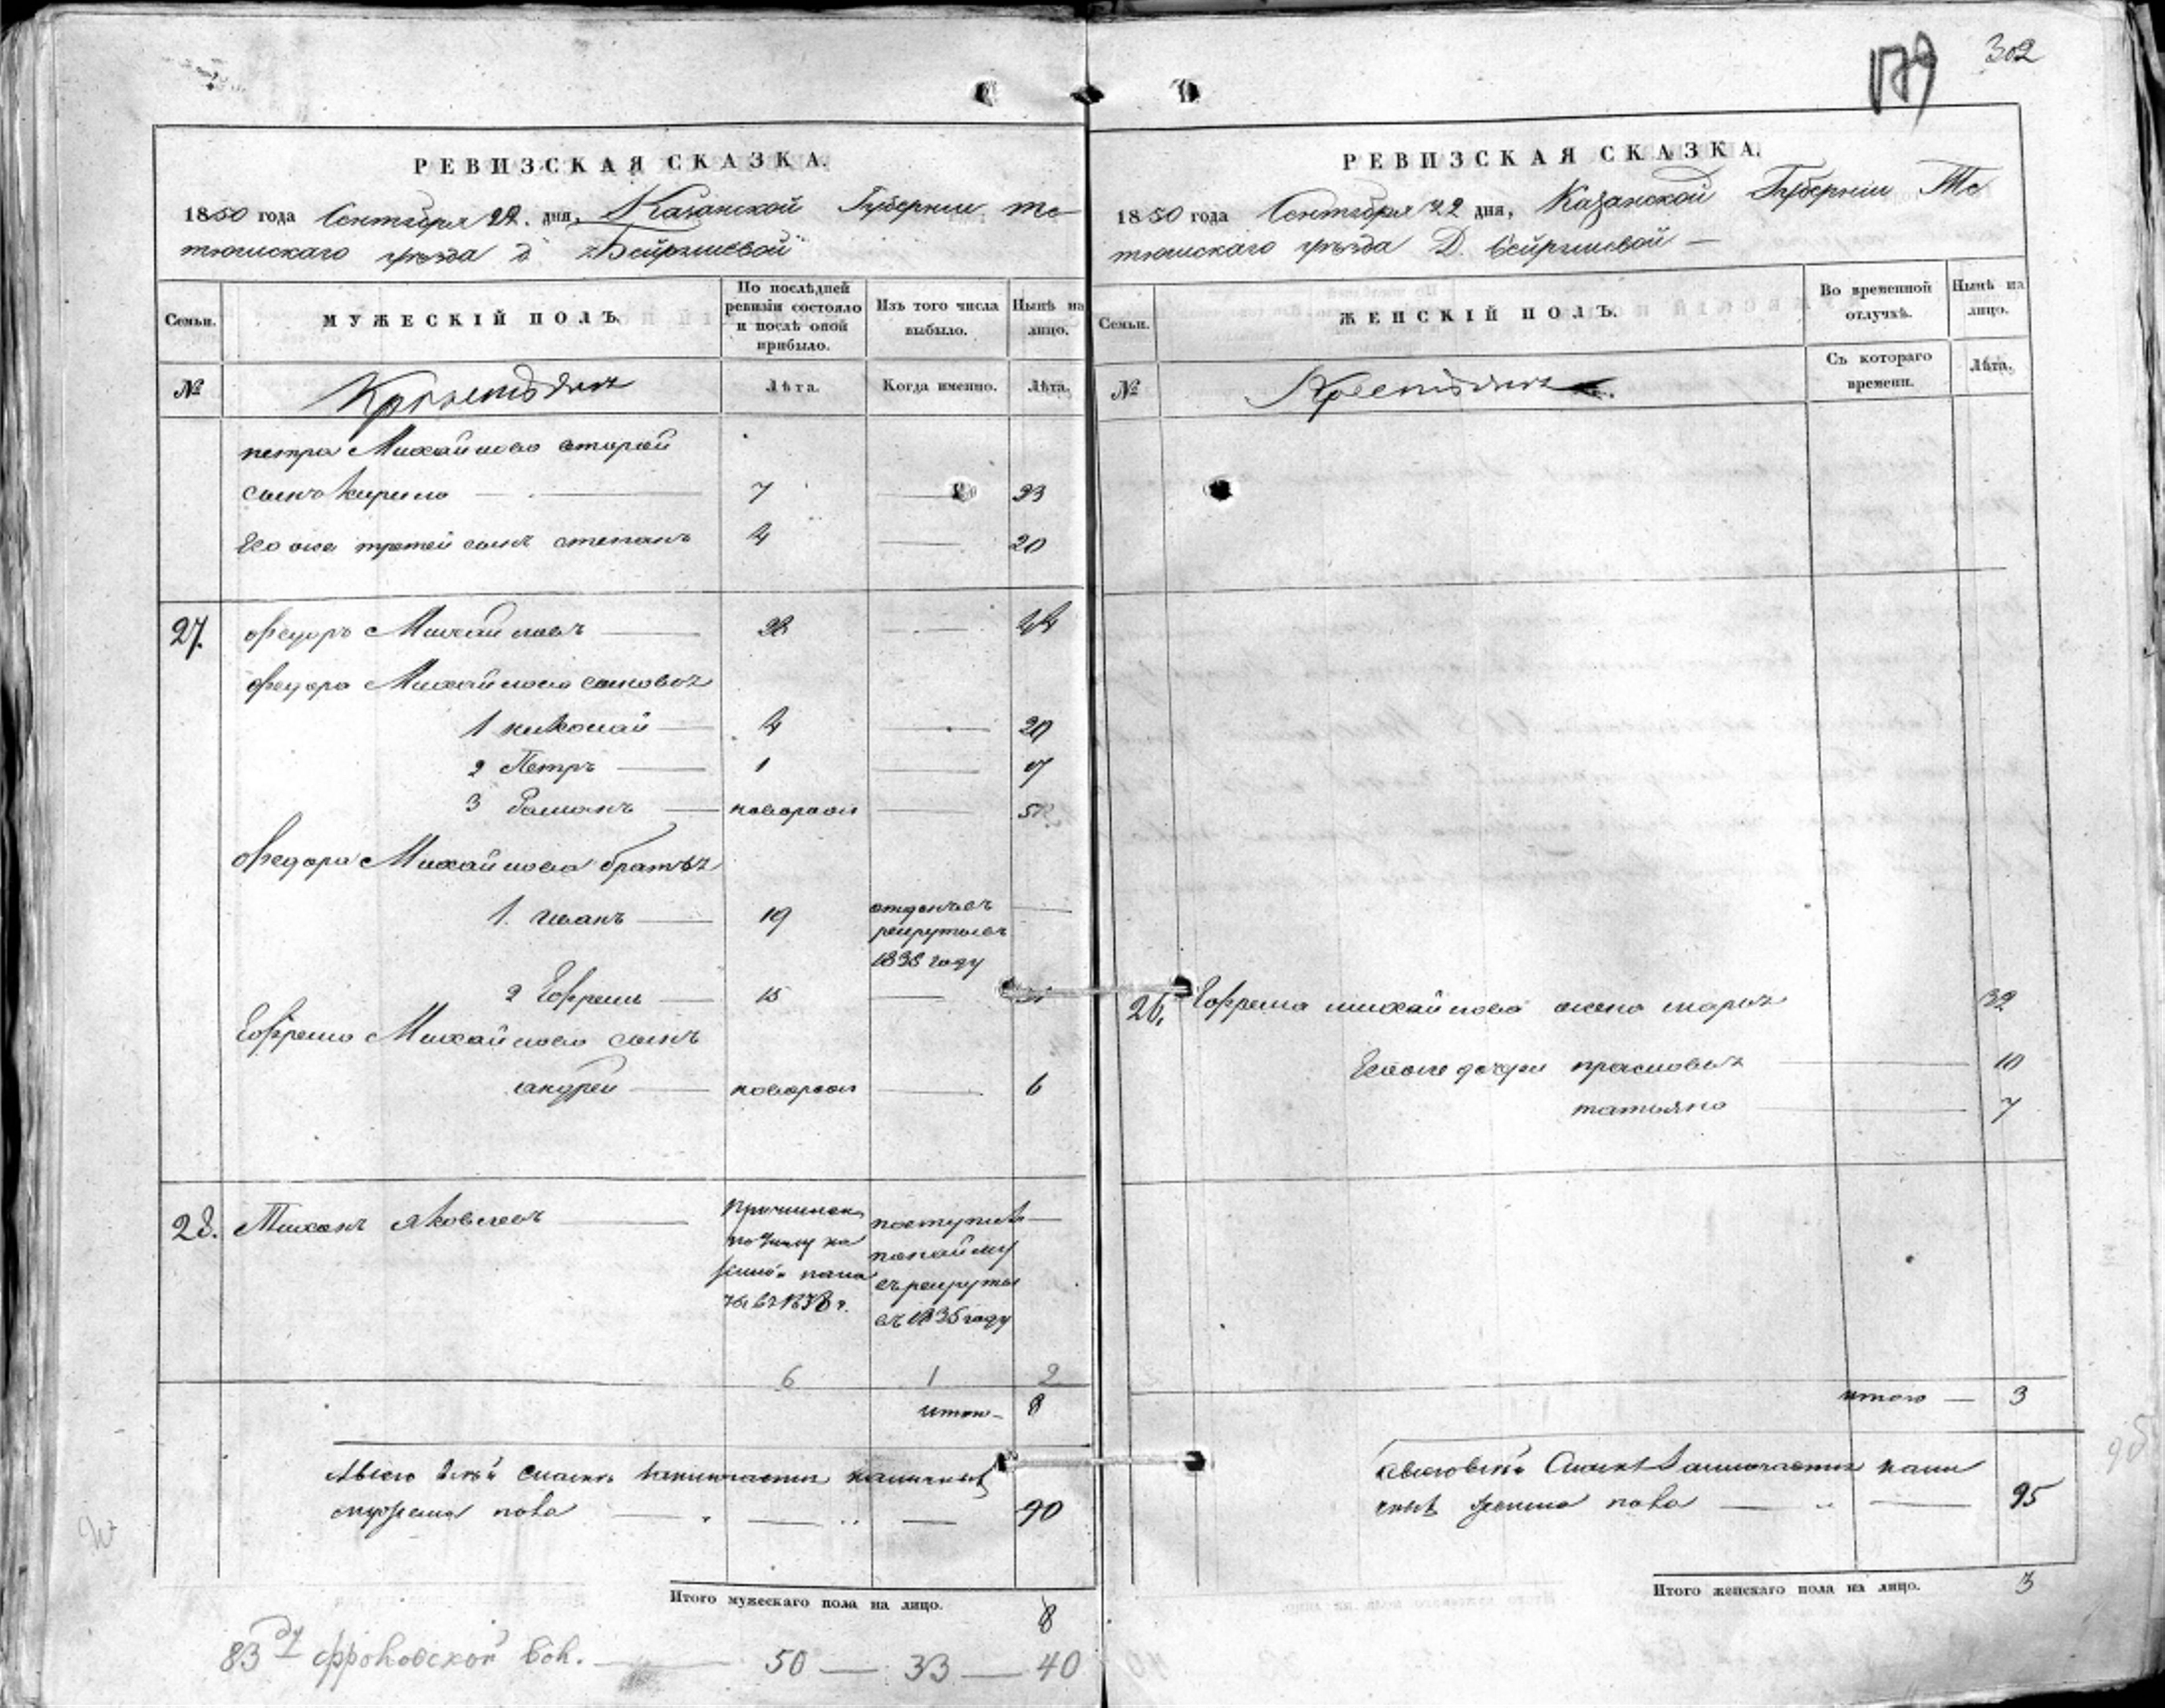 302
РЕВИЗСКАЯ СКАЗКА.
1850 года Сентября 22. дня, Казанской Губернии Те
тюшскаго уезда д. Бейргишевой
Семьи. МУЖЕСКІЙ ПОЛЪ. По послѣдней ревизіи состояло и послѣ оной прибыло. Изъ того числа выбыло. Нынѣ на лицо.
№ Крестьянъ Лѣта. Когда именно. Лѣта.
петра Михайлова второй
сынъ Кирило 7 23
Его же третей сынъ степанъ 4 20
27. Федоръ Михайловъ 28 44
Федора Михайлова сыновья
1 николай 4 20
2 Петръ 1 17
3 Романъ новорож
Федора Михайлова братья
1. Иванъ 19 отданъ въ
рекруты въ
1838 году
2 Ефремъ 15 31
Ефрема Михайлова сынъ
андрей новорож 6
28. Яковлевъ поступилъ
по найму
въ рекруты
въ 1836 году
6 1 2
итого 8
Всего въ сей сказкѣ заключается наличныхъ
мужеска пола 90
Итого мужескаго пола на лицо. 8
83 50 — 33 — 40
РЕВИЗСКАЯ СКАЗКА.
1850 года Сентября 22 дня, Казанской Губерніи Те
тюшскаго уезда Д. Бейргишевой
Семьи. ЖЕНСКІЙ ПОЛЪ. Во временной отлучкѣ. Нынѣ на лицо.
№ Крестьянъ Съ котораго времени. Лѣта.
Ефрема михайлова жена марья 32
дочери прасковья 10
татьяна 7
итого — 3
Всего въ сей сказкѣ заключается нали
чныхъ женска пола 95
Итого женскаго пола на лицо. 3